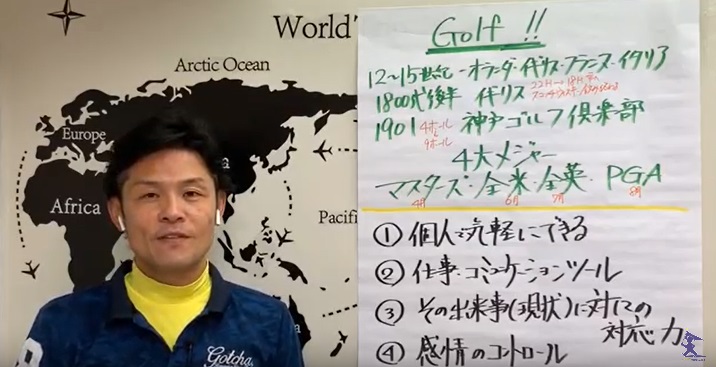 World
Arctic Ocean
Europe
Africa
Pacific
Gotcha
Golf !!
12〜15世紀-オランダ・イギリス・フランス・イタリア
1800代後半 イギリス
22H→18H
1901 4ホール 神戸ゴルフ倶楽部
9ホール
4大メジャー
マスターズ・全米・全英・PGA
4月 6月 7月 8月
① 個人で気軽にできる
② 仕事・コミュニケーションツール
③ その出来事(現状)に対しての
対応力
④ 感情のコントロール